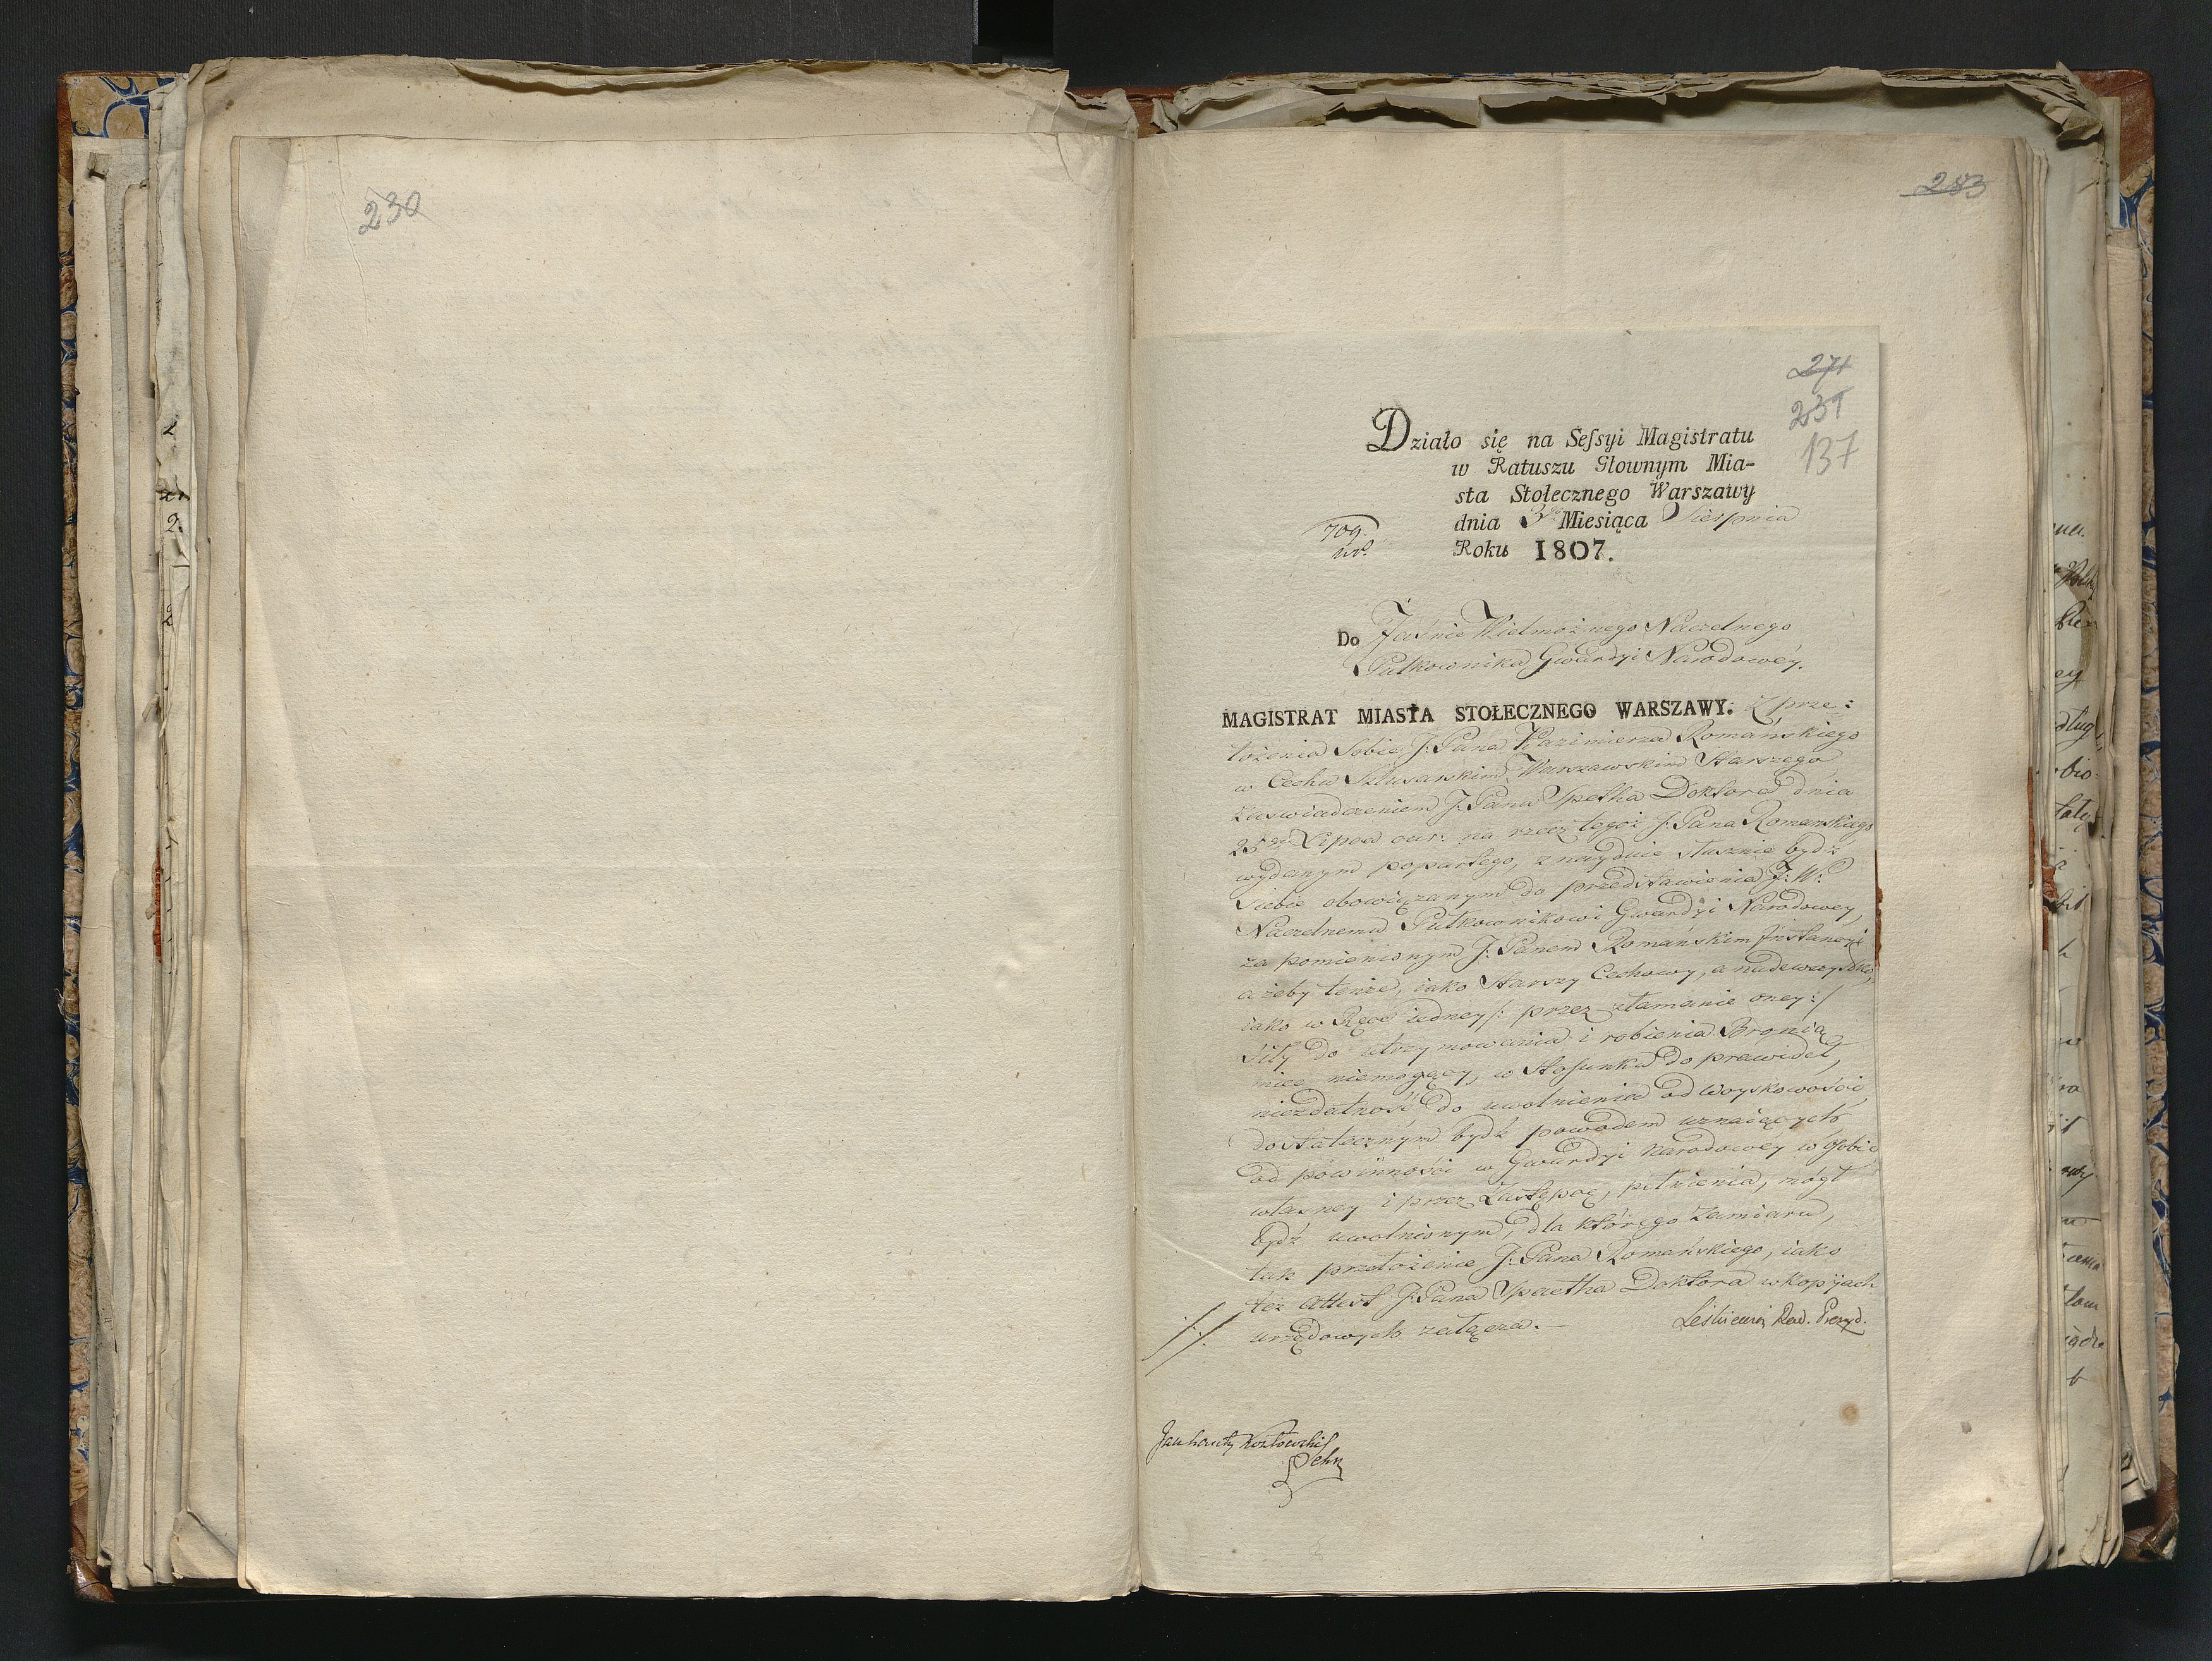 230
283
271
231
137
Działo się na Seſsyi Magistratu
w Ratuszu Głownym Mia-
sta Stołecznego Warszawy
dnia 3go Miesiąca Sierpnia
Roku 1807.
709.
Do Jaśnie Wielmożnego Naczelnego
Pułkownika Gwardyi Narodowéy.
MAGISTRAT MIASTA STOŁECZNEGO WARSZAWY. Z prze:
łożenia Sobie J: Pana Kazimierza Romańskiego
w Cechu Szlusarskim Warszawskim Starszego
Zaświadczeniem J: Pana Spetha Doktora dnia
25go Lipca na rzecz tegoż J: Pana Romanskiego
wydanym popartego, znayduie słusznie bydź
Siebie obowiązanym do przedstawienia J: W:
Naczelnemu Pułkownikowi Gwardyi Narodowey,
za pomienionym J: Panem Romańskim Instancyi
ażeby tenże, iako Starszy Cechowy, a nadewszystko,
iako w Ręce iedney /: przez złamanie oney :/
Siły do utrzymowania i robienia Bronią
miec niemogący, w Stosunku do prawideł,
niezdatność do uwolnienia od Woyskowości
dostatecznym bydź powodem uznaiących
od powinności w Gwardyi Narodowey w Osobie
własney i przez Zastępcę, pełnienia, mógł
bydź uwolnionym, dla którego Zamiaru,
tak przełożenie J: Pana Romańskiego, iako
też Attest J: Pana Spaetha Doktora w kopijach
urzędowych załącza.—
Leśkiewicz Rad. Prezyd.
Jan Kanty Kozłowski
Sekr